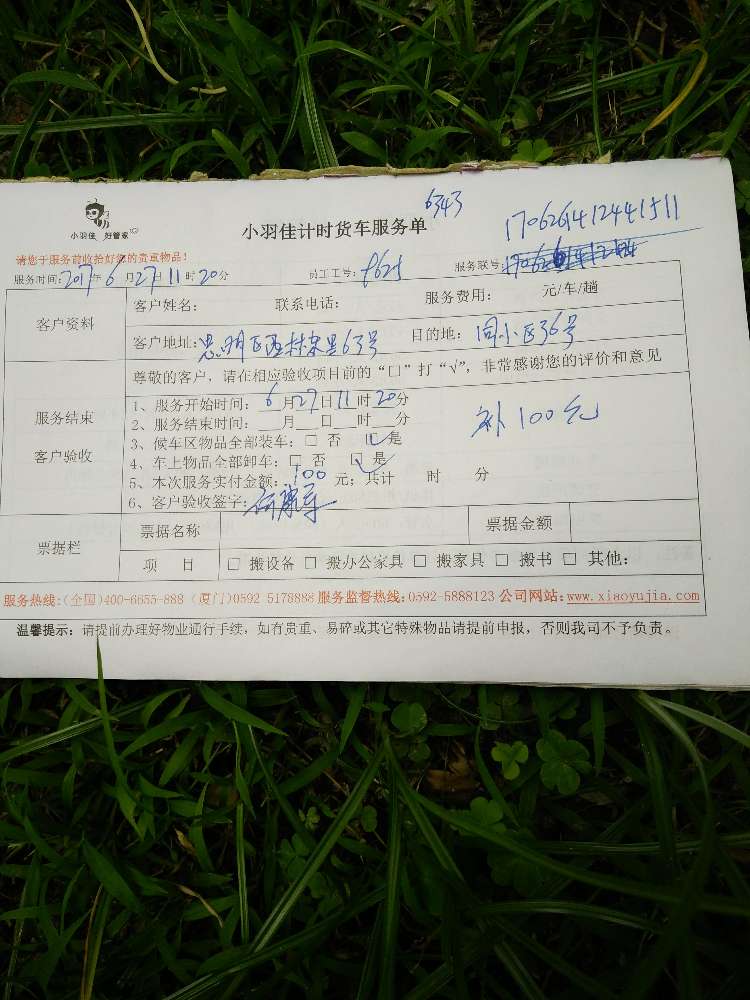 6343
小羽佳 好管家
小羽佳计时货车服务单
1706261412441511
请您于服务前收拾好您的贵重物品!
服务时间:2017年6月27日11时20分 员工工号: 服务联号:
客户资料
客户姓名: 联系电话: 服务费用: 元/车/趟
客户地址:思明区 63号 目的地:同小区36号
尊敬的客户,请在相应验收项目前的“口”打“√”,非常感谢您的评价和意见
服务结束
客户验收
1、服务开始时间:6月27日11时20分
2、服务结束时间:__月__日__时__分
3、候车区物品全部装车:□ 否 □ 是
4、车上物品全部卸车:□ 否 □ 是
5、本次服务实付金额:100元;共计 时 分
6、客户验收签字:
补100元
票据栏
票据名称 票据金额
项 目 □ 搬设备 □ 搬办公家具 □ 搬家具 □ 搬书 □ 其他:
服务热线:(全国)400-6655-888 (厦门)0592 5178888 服务监督热线:0592-5888123 公司网站:www.xiaoyujia.com
温馨提示:请提前办理好物业通行手续,如有贵重、易碎或其它特殊物品请提前申报,否则我司不予负责。